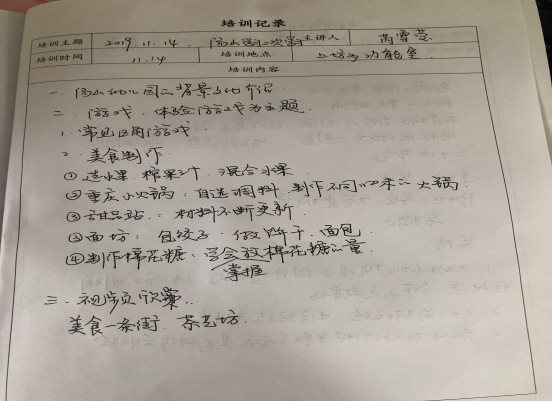 培训记录
培训主题 2019.11.14, 汤山第二次 主讲人 芮雪莹
培训时间 11.14 培训地点 功能室
培训内容
一、汤山幼儿园的背景与介绍
二、游戏, 体验游戏为主题
1. 常见区角游戏
2. 美食制作
①造水果, 榨果汁, 混合水果
②重庆小火锅: 自选调料, 制作不同口味的火锅
③甜品站: 材料不断更新
③面坊: 包饺子, 做饼干, 面包
④制作棉花糖: 学会放棉花糖的量
掌握
三、视频欣赏
美食一条街, 茶艺坊.